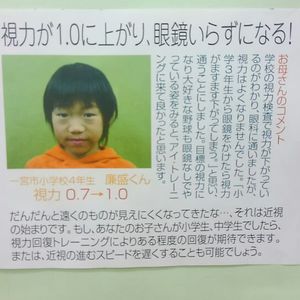 視力が1.0に上がり、眼鏡いらずになる!
お母さんのコメント
学校の視力検査で視力が下がってい
るのがわかり、眼科に通いましたが、
視力はよくなりませんでした。「小
学3年生から眼鏡をかけたら視力
がますます下がってしまう」と思い
通うことにしました。目標の視力に
なり大好きな野球も眼鏡なしでや
っている姿をみると、アイ・トレーニ
ングに来て良かったと思います。
一宮市小学校4年生 廉盛くん
視力 0.7→1.0
だんだんと遠くのものが見えにくくなってきたな…、それは近視
の始まりです。もし、あなたのお子さんが小学生、中学生でしたら、
視力回復トレーニングによりある程度の回復が期待できます。
または、近視の進むスピードを遅くすることも可能でしょう。